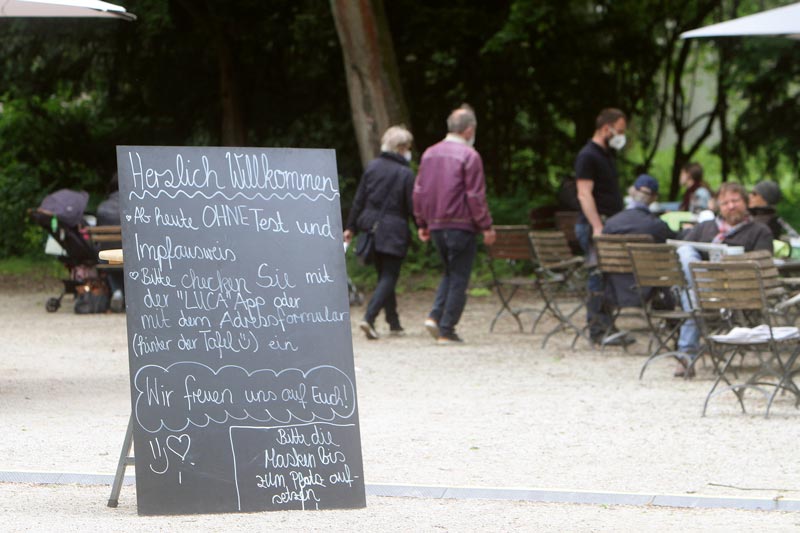 Herzlich Willkommen
♡ Ab heute OHNE Test und
Impfausweis
♡ Bitte checken Sie mit
der "LUCA" App oder
mit dem Adressformular
(hinter der Tafel ü) ein
Wir freuen uns auf Euch!
Bitte die
Masken bis
zum Platz auf-
setzen